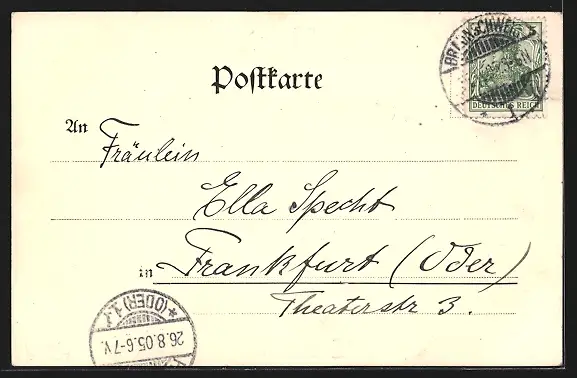 Postkarte
BRAUNSCHWEIG
* 1
DEUTSCHES REICH
An
Fräulein
Ella Specht
in Frankfurt (Oder)
Theaterstr 3.
*(ODER)1.
26.8.05.6-7V.